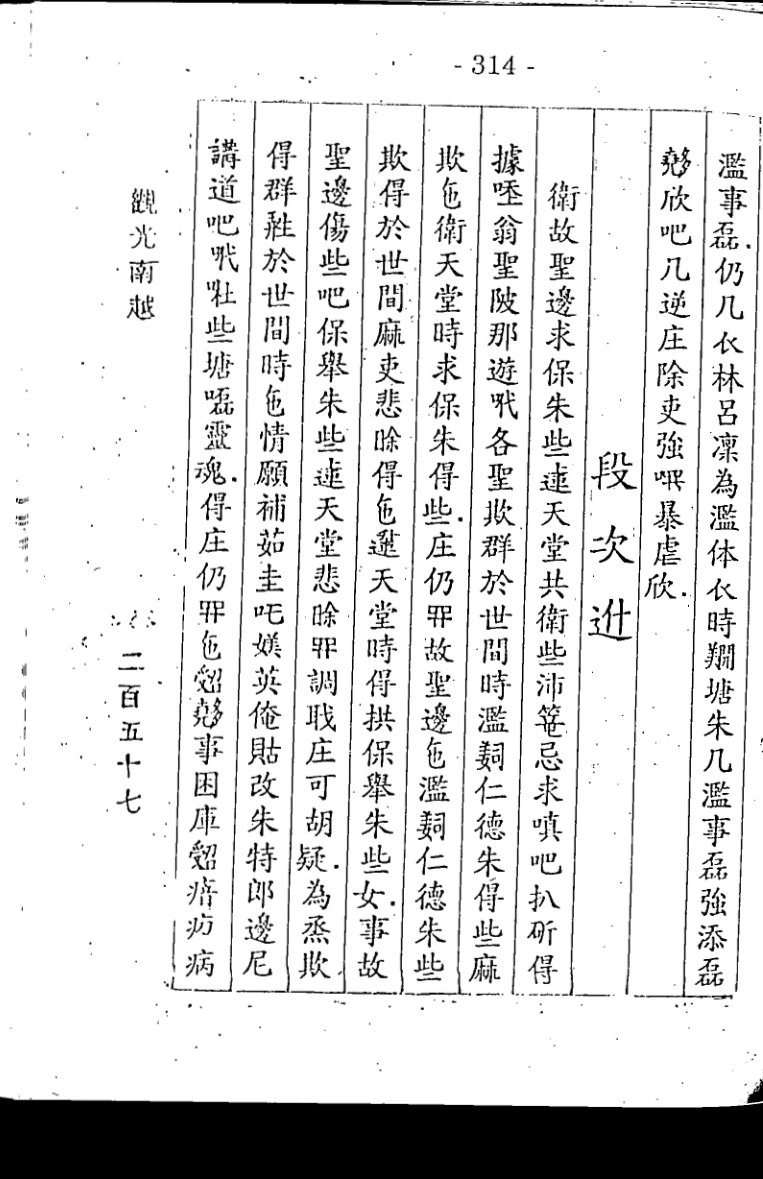 - 314 -
濫事磊.仍几𧘇林呂凛為濫体𧘇時𨷑塘朱几濫事磊強添磊
欣吧几逆庄除吏強暴虐欣.
段次𨒒
衛故聖邊求保朱些𨑗天堂共衛些沛箞忌求嗔吧扒斫得
據𠰺翁聖陂那遊𠳒各聖欺群於世間時濫𦎛仁德朱得些麻
欺㐌衛天堂時求保朱得些.庄仍罪故聖邊㐌濫𦎛仁德朱些
欺得於世間麻吏悲𣇞得㐌𨖲天堂時得拱保舉朱些女.事故
聖邊傷些吧保舉朱些𨑗天堂悲𣇞罪調𦖑庄可胡疑.為烝欺
得群𤯩於世間時㐌情願補茹圭吒媄英俺貼改朱特郎邊尼
講道吧𠳒𠰺些塘𠳹靈魂.得庄仍罪㐌𧴤事困庫𧴤瘄疠病
觀光南越
二百五十七